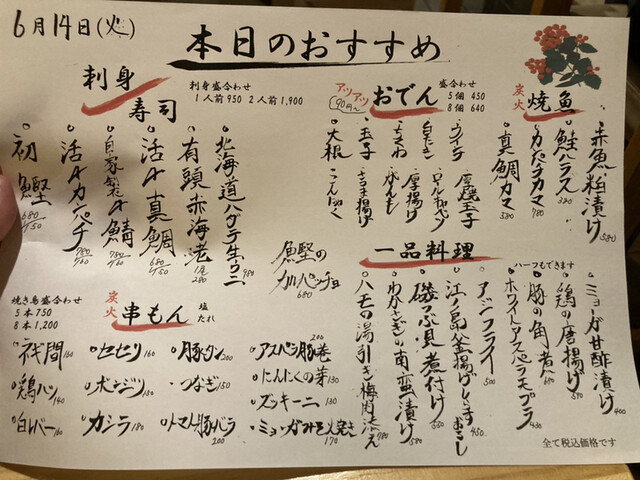 6月14日(火)
本日のおすすめ
刺身
刺身盛合わせ
1人前950 2人前1,900
寿司
北海道ハタテ生うに 980
有頭赤海老
活〆真鯛 680
自家製〆鯖
活〆カンパチ 780
初鰹 680
鰹の
カルパッチョ
680
アツアツ
90円〜
おでん
盛合わせ
5個 450
8個 640
ウインナ 厚焼玉子
白たき ロールキャベツ
ちくわ 厚揚げ
玉子 さつま揚げ
大根 こんにゃく
炭火
焼魚
赤魚粕漬け 580
鮭ハラス 380
カンパチカマ 780
真鯛カマ 580
一品料理
ハーフもできます
ミョーガ甘酢漬け 400
鶏の唐揚げ 690
豚の角煮 680
ホワイトアスパラモプラ 480
アジフライ 500
江ノ島釜揚げしらすおろし 450
磯つぶ貝煮付け 550
わかさぎの南蛮漬け 580
ハモの湯引き梅肉添え 780
焼き鳥盛合わせ
5本750
8本1,200
炭火
串もん
塩
たれ
ネギ間 160
鶏ハツ 140
白レバー 160
セセリ 160
ボンジリ 130
カシラ 180
豚タン 200
つなぎ 150
トマト豚バラ 200
アスパラ豚巻 200
にんにくの芽 130
ズッキーニ 130
ミョーガみそ焼き 170
全て税込価格です